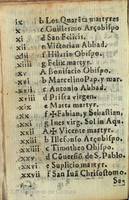 ix b Los Quarēta martyres
x c Guillelmo Arçobispo
xi d San Felicis.
xii e Victorian Abbad.
xiii f Hilario Obispo.
xiiii g Felix martyr.
xv A Bonifacio Obispo.
xvi b Marcelino Pap. y mar.
xvii c Antonio Abbad.
xviii d Prisca virgen.
xix e Marta martyr.
xx f ✠Fabian, y Sebastien,
xxi g Ines virg. Sol in Aqu.
xxii A ✠ Vicente martyr.
xxiii b Illefonso Arçobispo.
xxiiii c Timotheo Obispo.
xxv d Cōuersiō de S. Pablo.
xxvi
xxvii f San Iuā Chrisostomo.